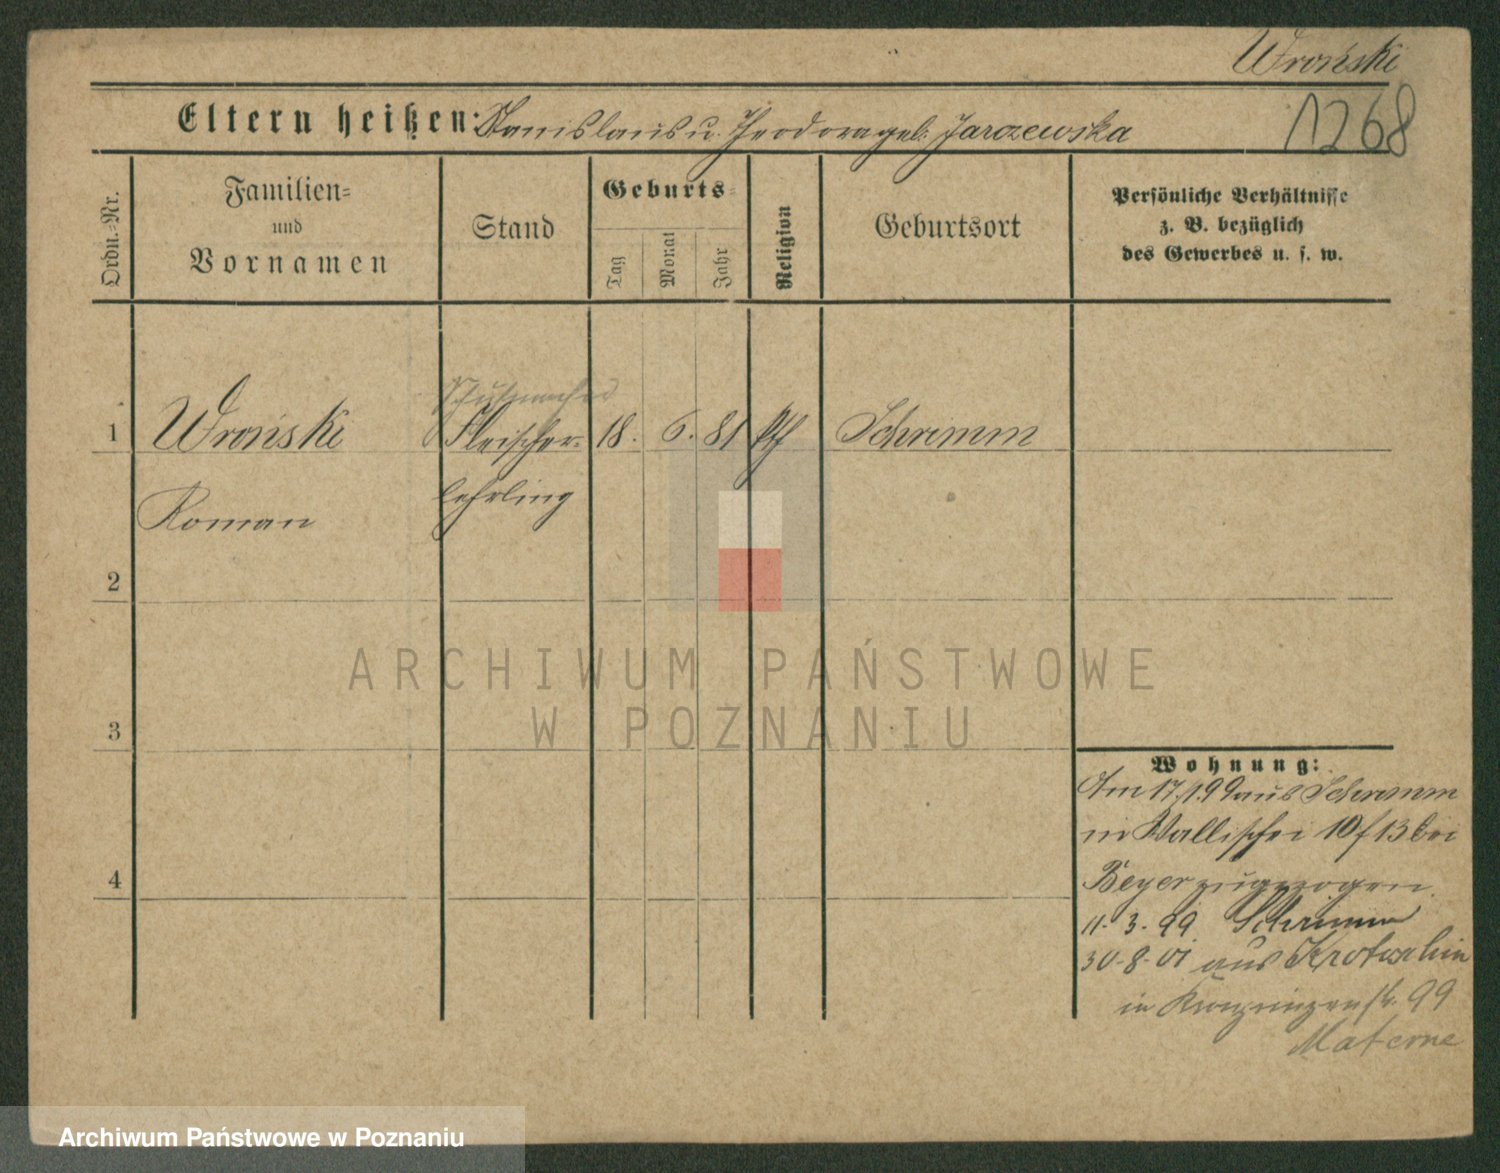 Wroński
1268
Eltern heißen: Stanislaus u. Theodora geb. Jarozewska
Ordn.-Nr.
Familien-
und
Vornamen
Stand
Geburts-
Tag
Monat
Jahr
Religion
Geburtsort
Persönliche Verhältnisse
z. B. bezüglich
des Gewerbes u. s. w.
Schuhmacher
1 Wroński Fleischer- 18. 6. 81 kth Schrimm
Roman lehrling
2
3
4
ARCHIWUM PAŃSTWOWE
W POZNANIU
Wohnung:
Am 17.1.99 aus Schrimm
in Wallischei 10/13 bei
Beyer zugezogen.
11.3.99 Schrimm
30.8.01 aus Krotoschin
in Kronprinzenstr. 99
Materne
Archiwum Państwowe w Poznaniu